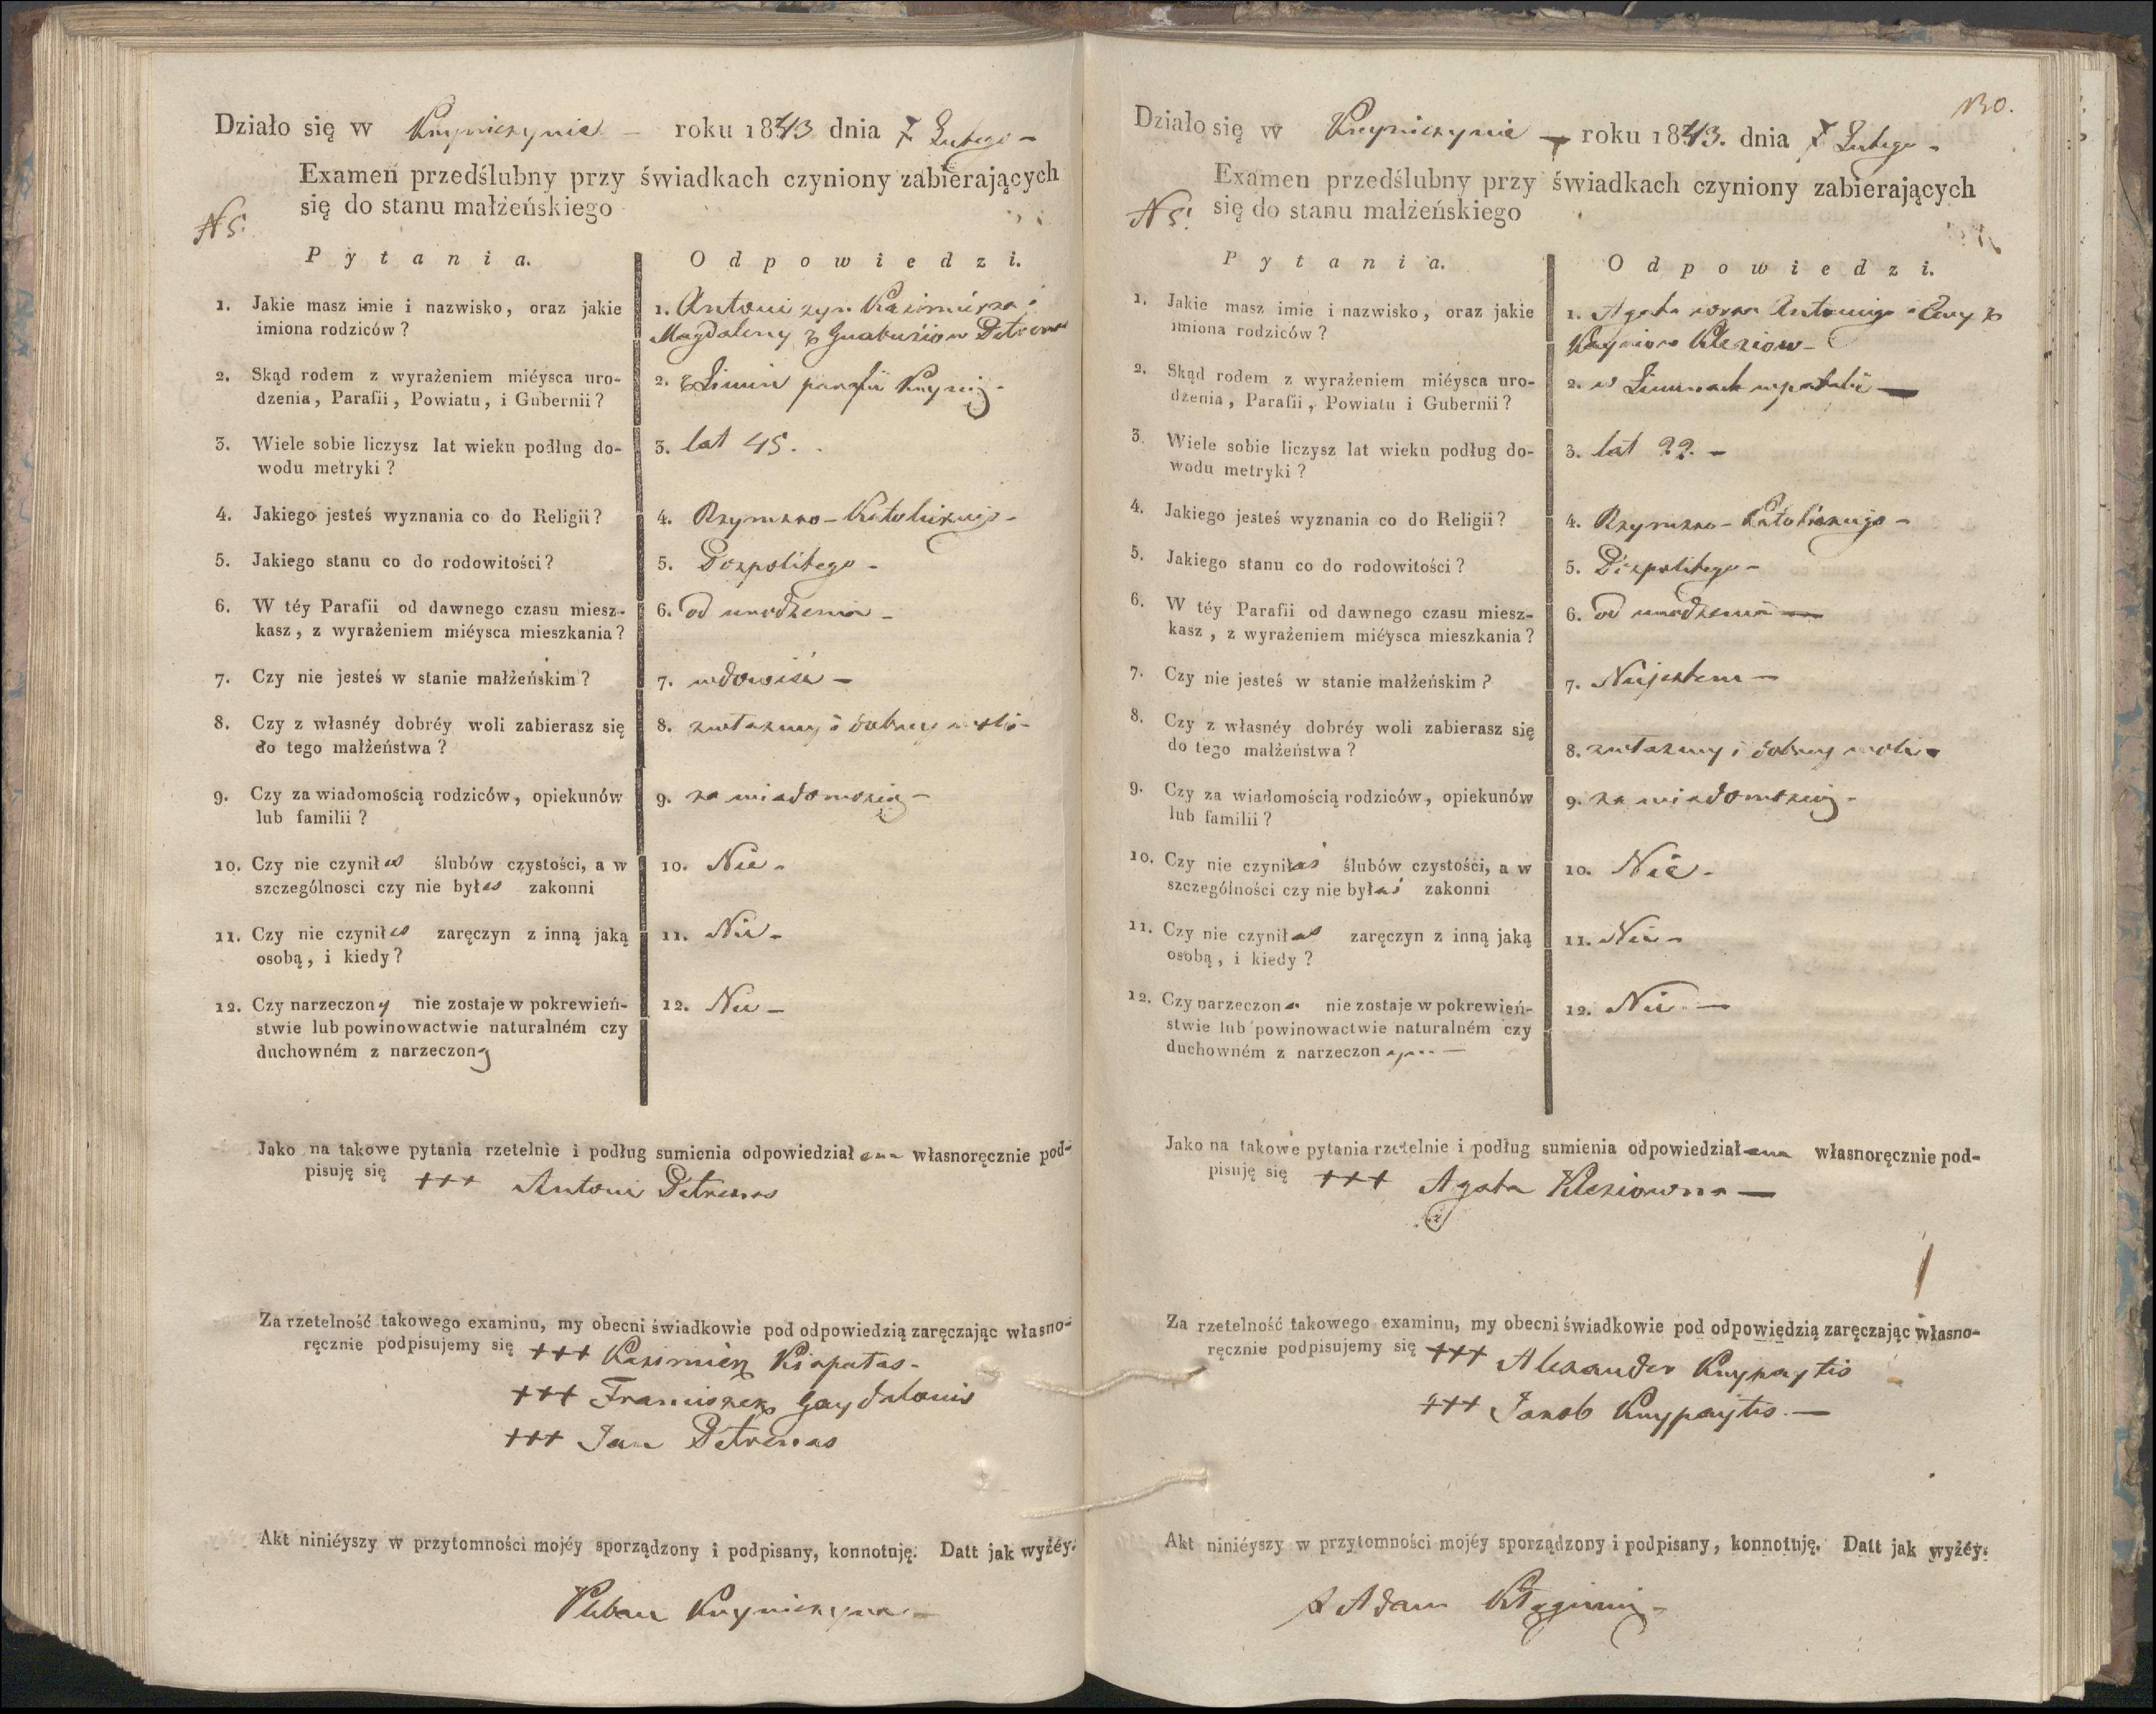 Działo się w Kryniczynie – roku 1843 dnia 7 Lutego –
Examen przedślubny przy świadkach czyniony zabierających
się do stanu małżeńskiego
N 5.
Pytania. Odpowiedzi.
1. Jakie masz imie i nazwisko, oraz jakie
imiona rodziców?
1. Antoni syn Kazimierza i
Magdaleny z
2. Skąd rodem z wyrażeniem miéysca uro-
dzenia, Parafii, Powiatu, i Gubernii?
2. parafii
3. Wiele sobie liczysz lat wieku podług do-
wodu metryki?
3. lat 45.
4. Jakiego jesteś wyznania co do Religii?
4. Rzymsko-Katolickiego –
5. Jakiego stanu co do rodowitości?
5. Pospolitego –
6. W téy Parafii od dawnego czasu miesz-
kasz, z wyrażeniem miéysca mieszkania?
6. od urodzenia –
7. Czy nie jesteś w stanie małżeńskim?
7. wdowiec –
8. Czy z własnéy dobréy woli zabierasz się
do tego małżeństwa?
8. zwłasney i dobrey woli –
9. Czy za wiadomością rodziców, opiekunów
lub familii?
9. za wiadomością –
10. Czy nie czyniłes ślubów czystości, a w
szczególnosci czy nie byłes zakonni
10. Nie –
11. Czy nie czyniłes zaręczyn z inną jaką
osobą, i kiedy?
11. Nie –
12. Czy narzeczony nie zostaje w pokrewień-
stwie lub powinowactwie naturalném czy
duchowném z narzeczoną
12. Nie –
Jako na takowe pytania rzetelnie i podług sumienia odpowiedział własnoręcznie pod-
pisuję się +++ Antoni Petrenas
Za rzetelność takowego examinu, my obecni świadkowie pod odpowiedzią zaręczając własno-
ręcznie podpisujemy się +++ Kazimierz
+++ Franciszek
+++ Jan Petrenas
Akt niniéyszy w przytomności mojéy sporządzony i podpisany, konnotuję. Datt jak wyżéy.
Pleban
130.
Działo się w Kryniczynie – roku 1843. dnia 7 Lutego –
Examen przedślubny przy świadkach czyniony zabierających
się do stanu małżeńskiego
N 5.
Pytania. Odpowiedzi.
1. Jakie masz imie i nazwisko, oraz jakie
imiona rodziców?
1. Agata corka Antoniego i Ewy z
2. Skąd rodem z wyrażeniem miéysca uro-
dzenia, Parafii, Powiatu i Gubernii?
2. w
3. Wiele sobie liczysz lat wieku podług do-
wodu metryki?
3. lat 22. –
4. Jakiego jesteś wyznania co do Religii?
4. Rzymsko-Katolickiego –
5. Jakiego stanu co do rodowitości?
5. Pospolitego –
6. W téy Parafii od dawnego czasu miesz-
kasz, z wyrażeniem miéysca mieszkania?
6. od urodzenia –
7. Czy nie jesteś w stanie małżeńskim?
7. Niejestem –
8. Czy z własnéy dobréy woli zabierasz się
do tego małżeństwa?
8. zwłasney i dobrey woli –
9. Czy za wiadomością rodziców, opiekunów
lub familii?
9. za wiadomością –
10. Czy nie czyniłaś ślubów czystości, a w
szczególności czy nie byłaś zakonni
10. Nie –
11. Czy nie czyniłas zaręczyn z inną jaką
osobą, i kiedy?
11. Nie –
12. Czy narzeczona nie zostaje w pokrewień-
stwie lub powinowactwie naturalném czy
duchowném z narzeczonym –
12. Nie –
Jako na takowe pytania rzetelnie i podług sumienia odpowiedział własnoręcznie pod-
pisuję się +++ Agata Kleziowna –
Za rzetelność takowego examinu, my obecni świadkowie pod odpowiedzią zaręczając własno-
ręcznie podpisujemy się +++ Alexander Knypaytis
+++ Jakob Knypaytis –
Akt niniéyszy w przytomności mojéy sporządzony i podpisany, konnotuję. Datt jak wyżéy.
X Adam